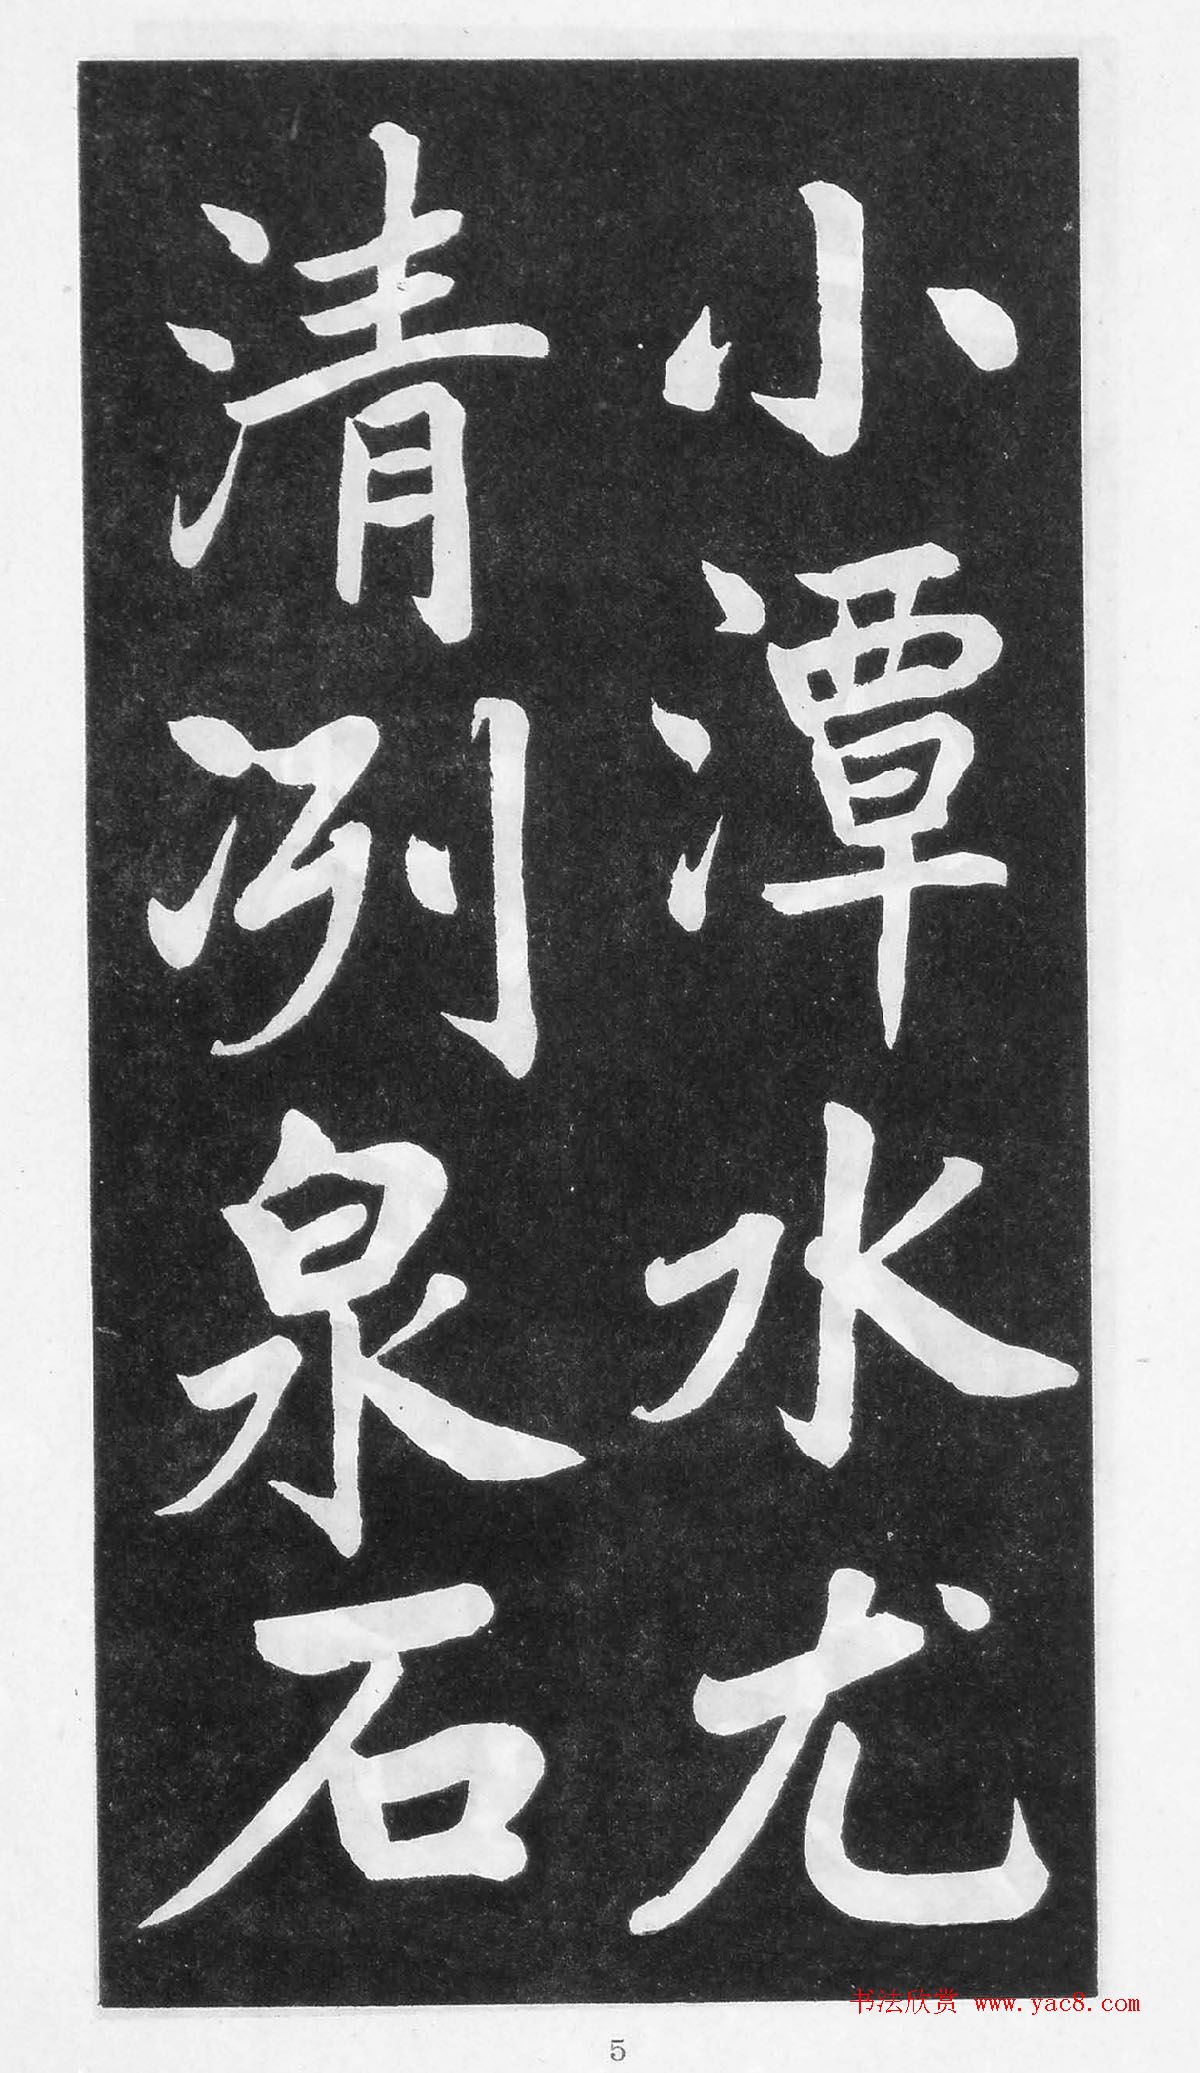 小潭水尤
清洌泉石
书法欣赏 www.yac8.com
5